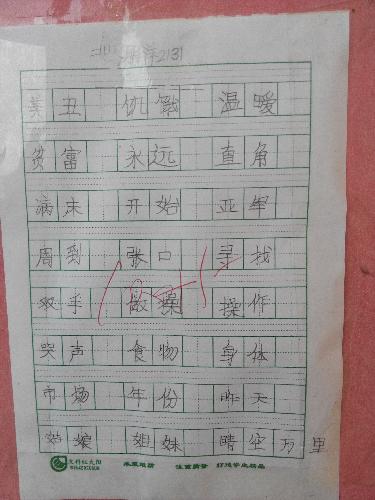 2131
美丑 饥饿 温暖
贫富 永远 直角
病床 开始 亚军
周到 张口 寻找
双手 做操 操作
哭声 食物 身体
市场 年份 昨天
姑娘 姐妹 晴空万里